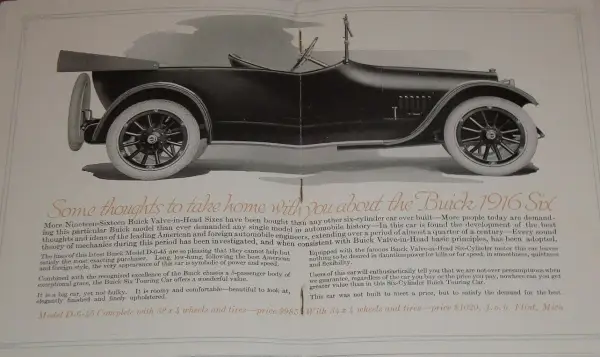 Some thoughts to take home with you about the Buick 1916 Six
More Nineteen-Sixteen Buick Valve-in-Head Sixes have been bought than any other six-cylinder car ever built—More people today are demand-
ing this particular Buick model than ever demanded any single model in automobile history—In this car is found the development of the best
thoughts and ideas of the leading American and foreign automobile engineers, extending over a period of about a quarter of a century—Every sound
theory of mechanics during this period has been investigated, and when consistent with Buick Valve-in-Head basic principles, has been adopted.
The lines of this latest Buick Model D-6-45 are so pleasing that they cannot help but
satisfy the most exacting purchaser. Long, low-hung, following the best American
and foreign style, the very appearance of the car is symbolic of power and speed.
Combined with the recognized excellence of the Buick chassis a 5-passenger body of
exceptional grace, the Buick Six Touring Car offers a wonderful value.
It is a big car, yet not bulky. It is roomy and comfortable—beautiful to look at,
elegantly finished and finely upholstered.
Equipped with the famous Buick Valve-in-Head Six-Cylinder motor this car leaves
nothing to be desired in dauntless power for hills or for speed, in smoothness, quietness
and flexibility.
Users of this car will enthusiastically tell you that we are not over presumptuous when
we guarantee, regardless of the car you buy or the price you pay, nowhere can you get
greater value than in this Six-Cylinder Buick Touring Car.
This car was not built to meet a price, but to satisfy the demand for the best.
Model D-6-45 Complete with 32 x 4 wheels and tires—price $985 With 34 x 4 wheels and tires—price $1020, f. o. b. Flint, Mich.